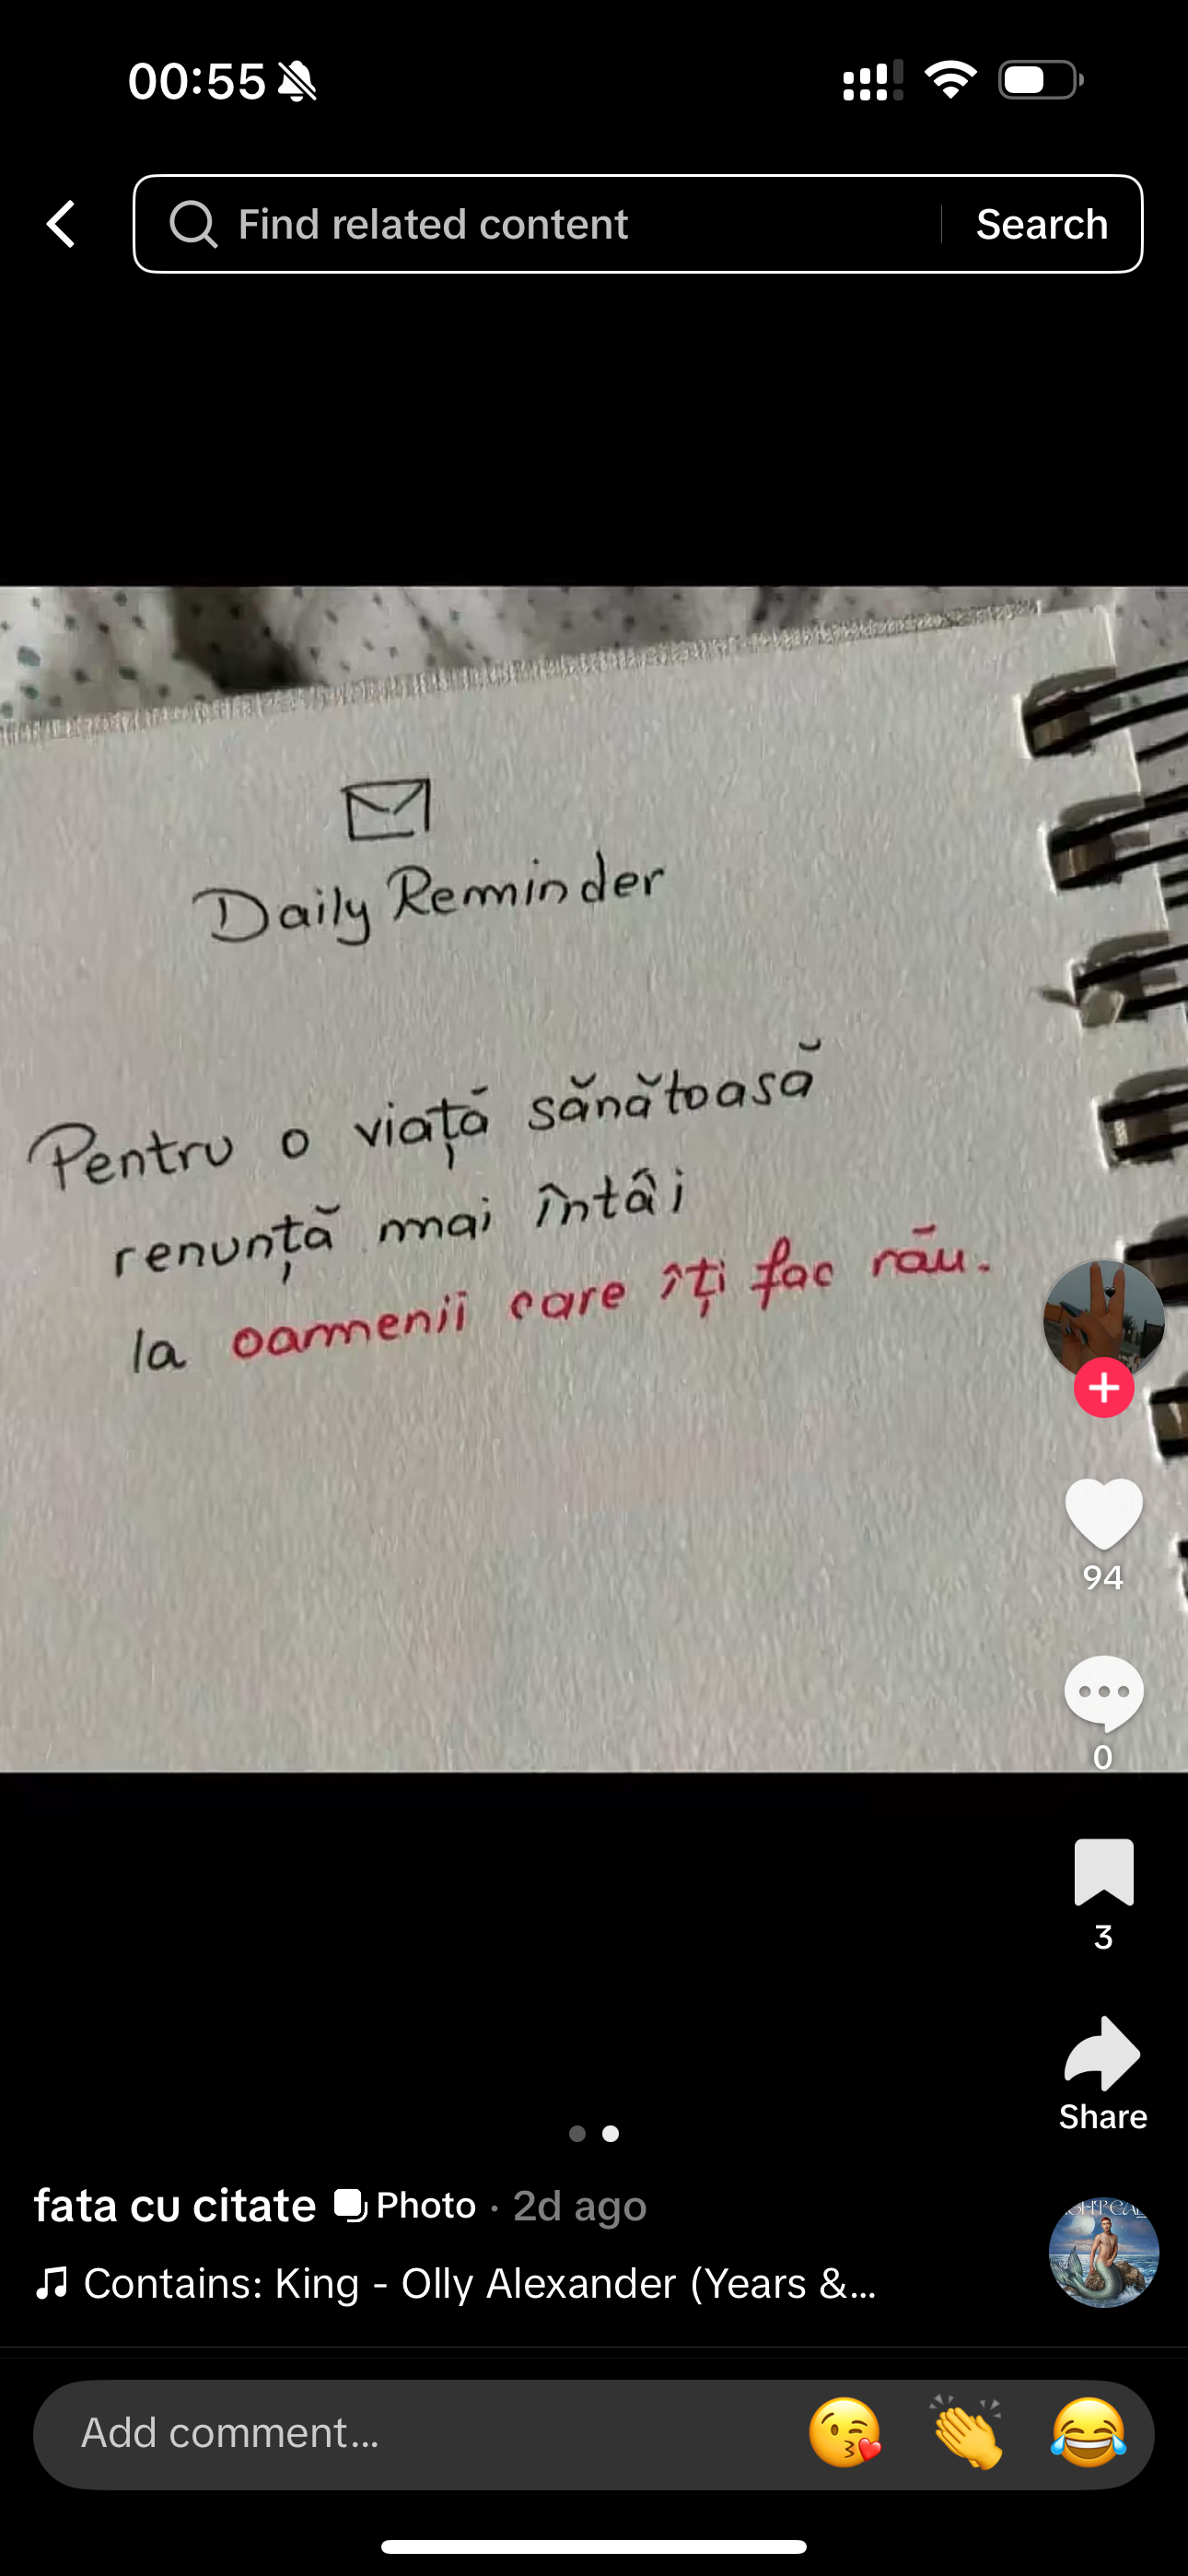 00:55
Find related content
Search
Daily Reminder
Pentru o viață sănătoasă
renunță mai întâi
la oamenii care îți fac rău.
94
0
3
Share
fata cu citate Photo · 2d ago
Contains: King - Olly Alexander (Years &...
Add comment...